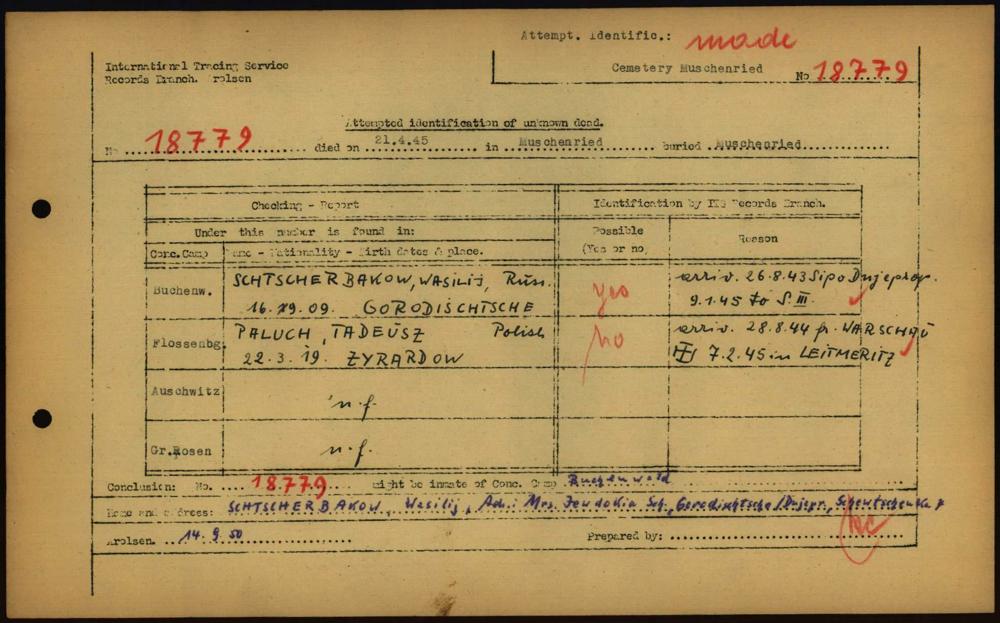 Attempt. Identific.: made
International Tracing Service
Records Branch. Arolsen
Cemetery Muschenried No 18779
Attempted identification of unknown dead.
No 18779 died on 21.4.45 in Muschenried buried Muschenried
Checking - Report Identification by ITS Records Branch.
Under this number is found in: Possible (Yes or no) Reason
Conc.Camp Name - Nationality - Birth dates & place.
Buchenw. SCHTSCHERBAKOW, WASILIJ, Russ. yes arriv. 26.8.43 Sipo Dnjeprop.
09. GORODISCHTSCHE 9.1.45 to S III.
Flossenbg. PALUCH, TADEUSZ Polish no arriv. 28.8.44 fr. WARSCHAU
22.3.19. ZYRARDOW 7.2.45 in LEITMERITZ
Auschwitz n.f.
Gr.Rosen n.f.
Conclusion: No. 18779 might be inmate of Conc. Camp Buchenwald
Name and address: SCHTSCHERBAKOW, Wasilij, Adr.: Mrs. Jewdokia Sch., Gorodischtsche/Dnjepr,
Arolsen. 14.9.50 Prepared by: